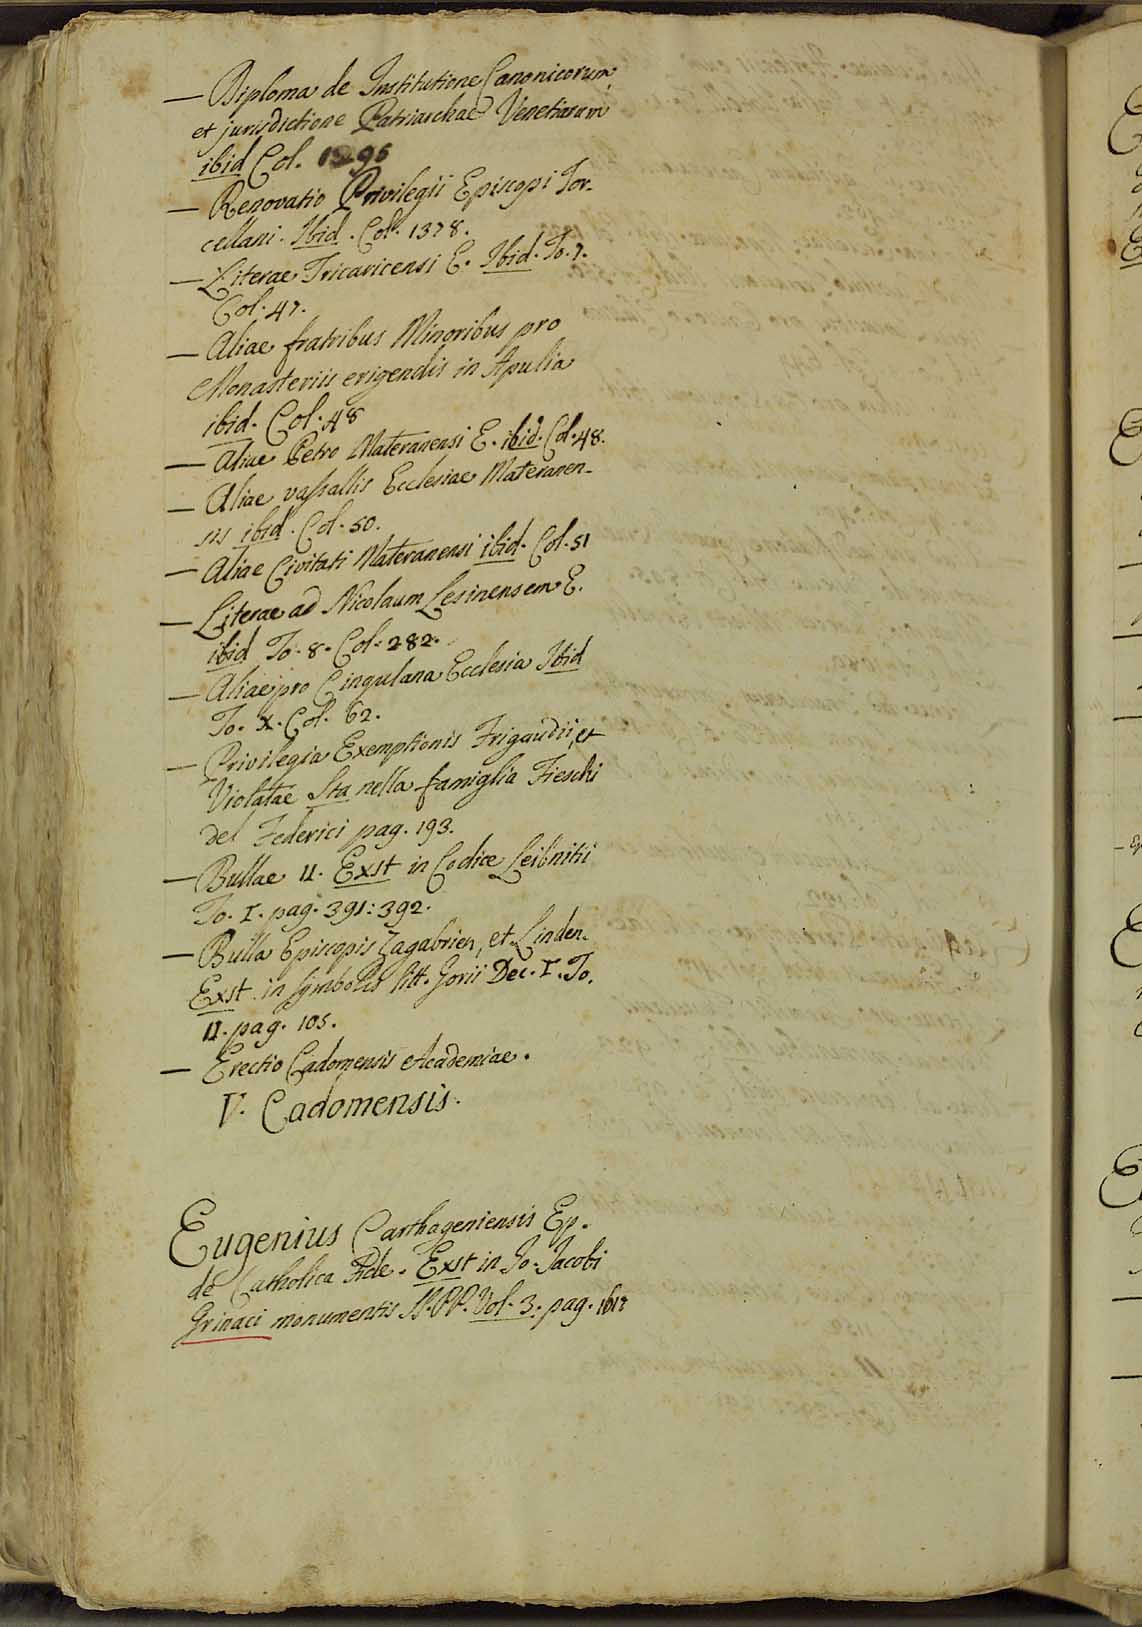 — Diploma de Institutione Canonicorum
et jurisdictione Patriarchae Venetiarum
ibid Col. 1296
— Renovatio Privilegii Episcopi Tor-
cellani. Ibid. Col. 1378.
— Literae Tricaricensi E. Ibid. To. 7.
Col. 47.
— Aliae fratribus Minoribus pro
Monasteriis erigendis in Apulia
ibid. Col. 48
— Aliae Petro Materanensi E. ibid. Col. 48.
— Aliae vassallis Ecclesiae Materanen-
sis ibid. Col. 50.
— Aliae Civitati Materanensi ibid. Col. 51
— Literae ad Nicolaum Lesinensem E.
ibid To. 8. Col. 282.
— Aliae pro Cingulana Ecclesia Ibid
To. X. Col. 62.
— Privilegia Exemptionis Frigaudii, et
Violatae Sta nella famiglia Fieschi
del Federici pag. 193.
— Bullae II. Exst in Codice Leibnitii
To. I. pag. 391: 392.
— Bulla Episcopis Zagabrien, et Linden.
Exst in Symbolis litt. Gorii Dec. I. To.
II. pag. 105.
— Erectio Cadomensis Academiae.
V. Cadomensis.
Eugenius Carthageniensis Ep.
de Catholica Fide. Exst in Jo. Jacobi
Grinaei monumentis S. PP. Vol. 3. pag.